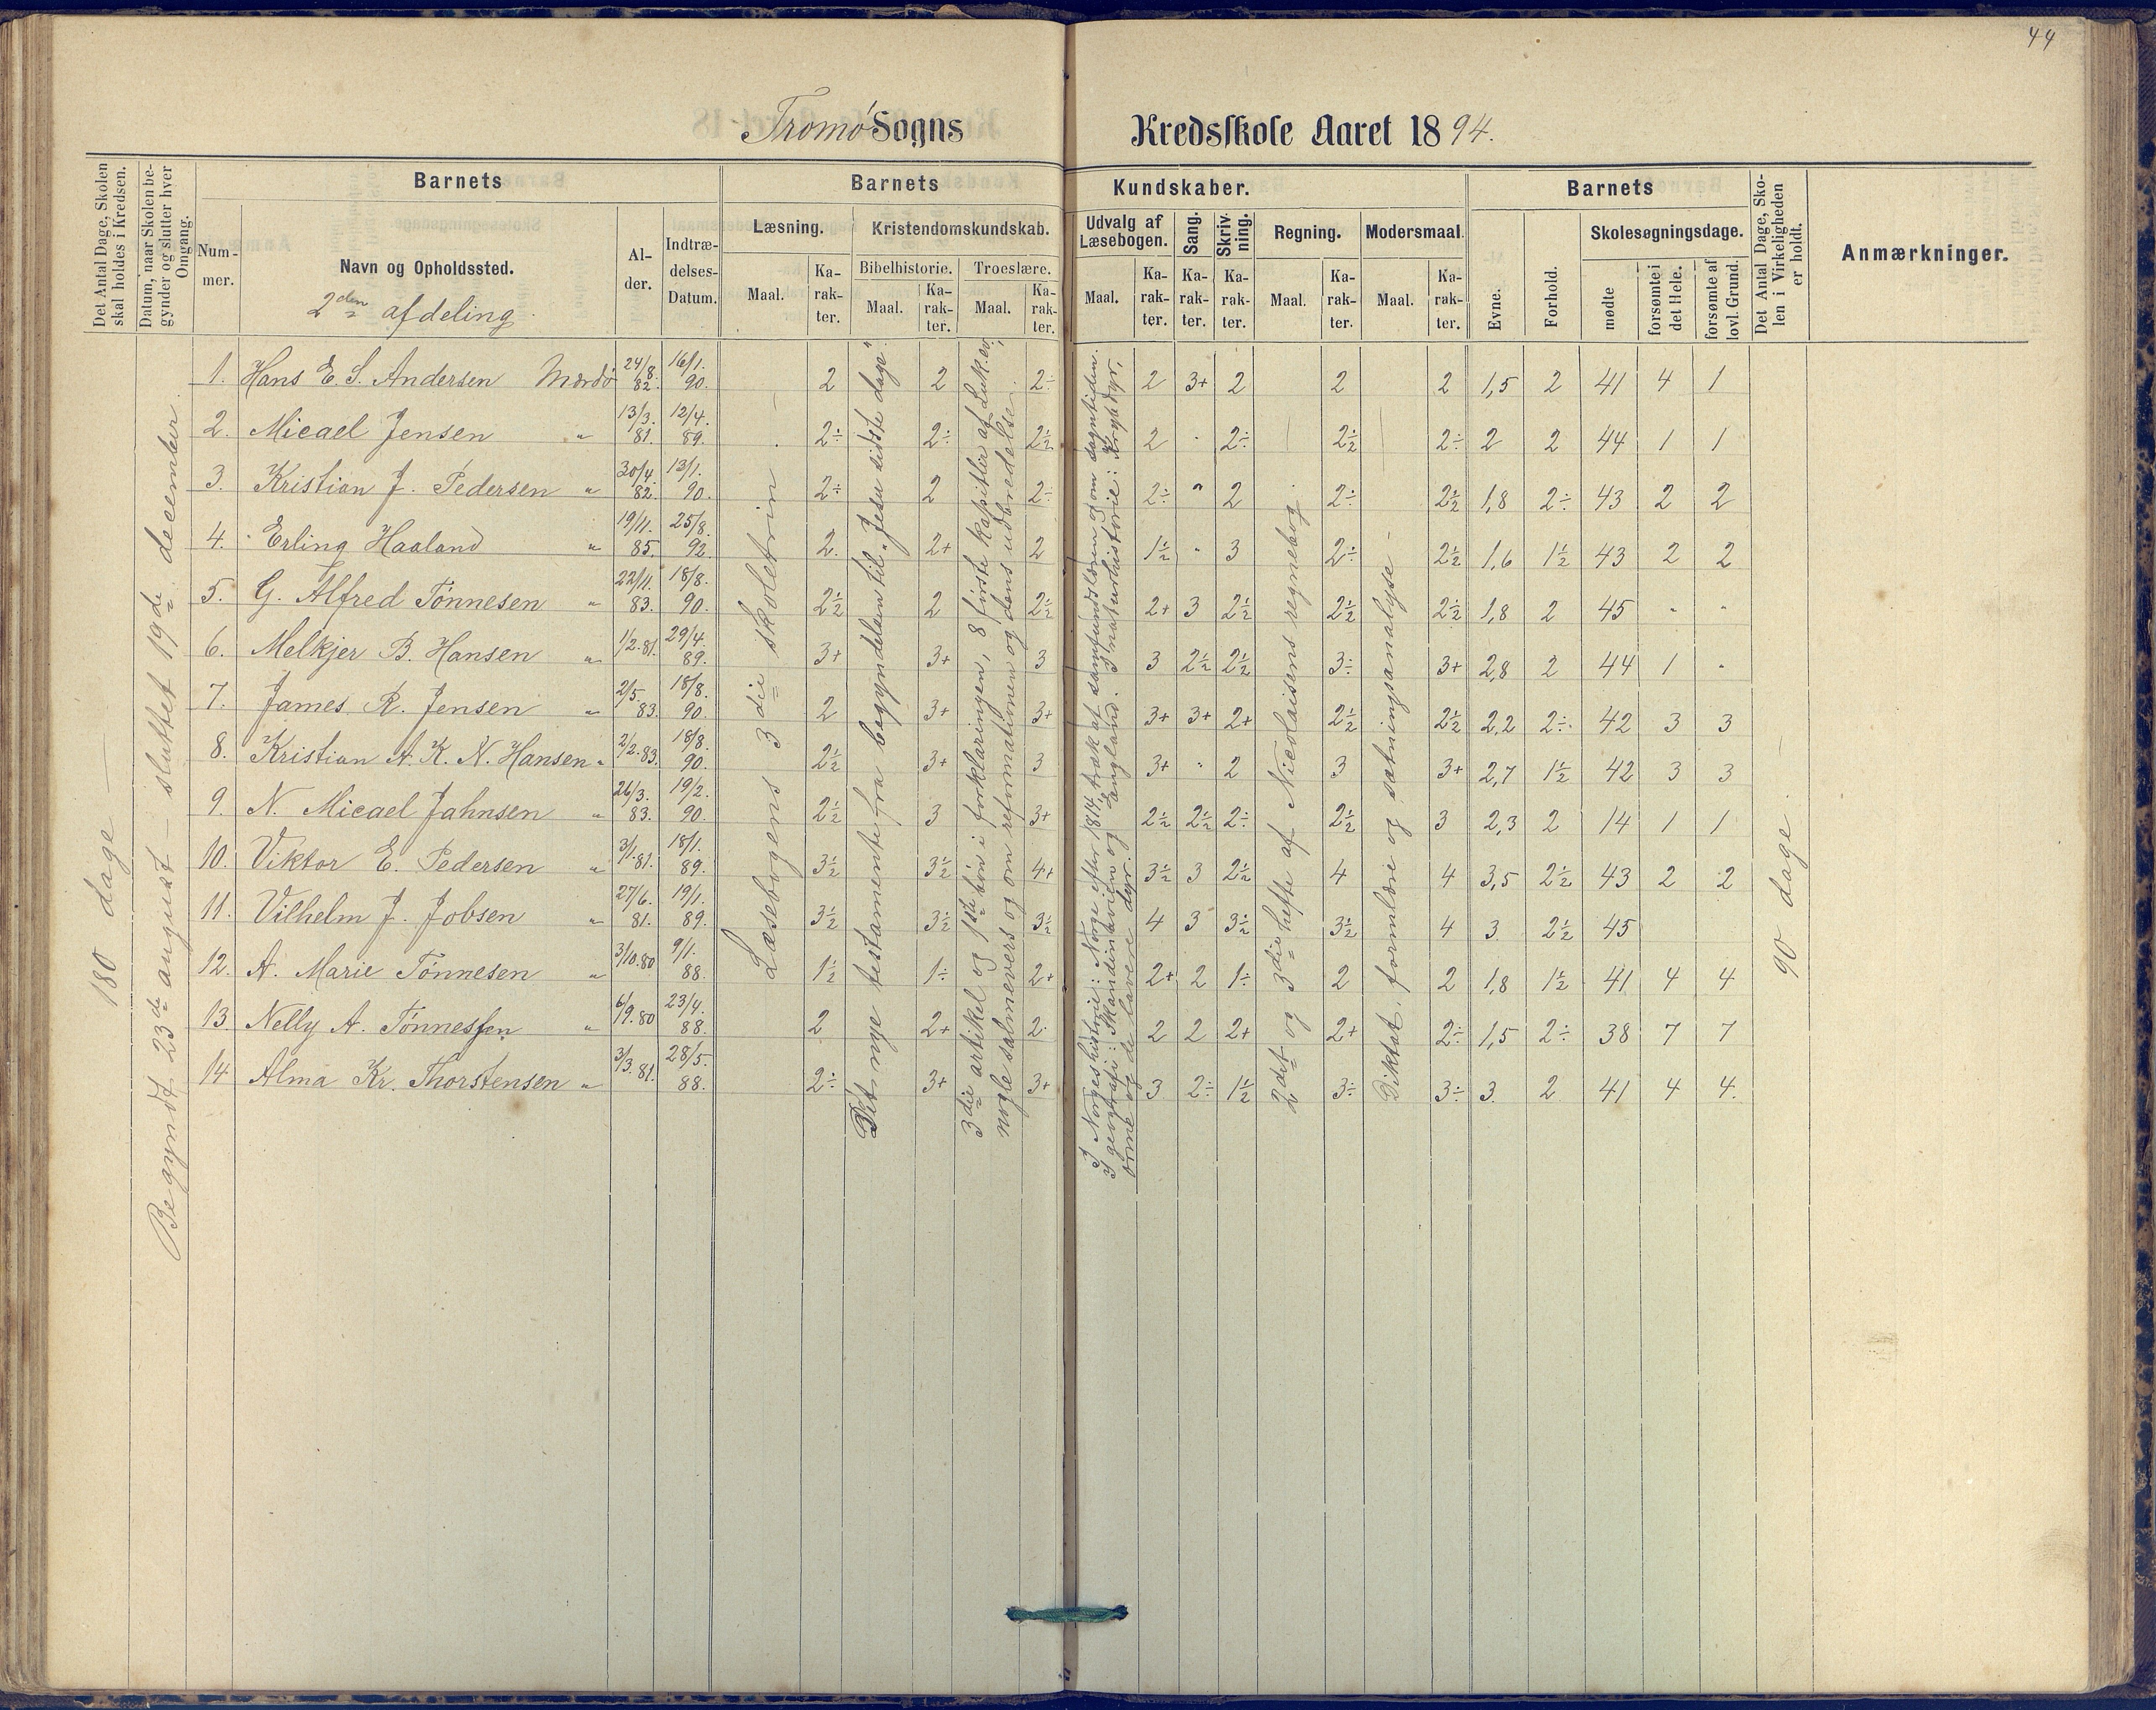 44
Tromø Sogns Kredsskole Aaret 1894.
Det Antal Dage, Skolen skal holdes i Kredsen.
Datum, naar Skolen begynder og slutter hver Omgang.
Barnets
Barnets Kundskaber.
Barnets
Det Antal Dage, Skolen i Virkeligheden er holdt.
Anmærkninger.
Nummer.
Navn og Opholdssted.
2den afdeling.
Alder.
Indtrædelses-Datum.
Læsning.
Maal.
Karakter.
Kristendomskundskab.
Bibelhistorie.
Maal.
Karakter.
Troeslære.
Maal.
Karakter.
Udvalg af Læsebogen.
Maal.
Karakter.
Sang.
Karakter.
Skrivning.
Karakter.
Regning.
Maal.
Karakter.
Modersmaal.
Maal.
Karakter.
Evne.
Forhold.
Skolesøgningsdage.
mødte
forsømte i det Hele.
forsømte af lovl. Grund.
180 dage
Begyndt 23de august – sluttet 19de december.
Læsebogens 3die skoletrin
Det nye testamente fra begyndelsen til „Jesu sidste dage".
3die artikel og 1ste bøn i forklaringen, 8 første kapitler af Luk. ev.,
nogle salmevers og om reformationen og dens udbredelse.
I Norgeshistorie: Norge efter 1814, træk af samfundslæren og om sagntiden.
I geografi: Skandinavien og England. I naturhistorie: Krybdyr,
orme og de lavere dyr.
2det og 3die hefte af Nicolaisens regnebog.
Diktat, formlære og sætningsanalyse –
90 dage.
1. Hans E. S. Andersen Mærdø 24/8. 82. 16/1. 90. 2 2 2÷ 2 3+ 2 2 2 1,5 2 41 4 1
2. Micael Jensen " 13/3. 81. 12/4. 89. 2÷ 2÷ 2½ 2 " 2÷ 2½ 2÷ 2 2 44 1 1
3. Kristian J. Pedersen " 30/4. 82. 13/1. 90. 2÷ 2 2÷ 2÷ " 2 2÷ 2½ 1,8 2÷ 43 2 2
4. Erling Haaland " 19/11. 85. 25/8. 92. 2. 2+ 2 1½ " 3 2÷ 2½ 1,6 1½ 43 2 2
5. G. Alfred Tønnesen " 22/11. 83. 18/8. 90. 2½ 2 2½ 2+ 3 2½ 2½ 2½ 1,8 2 45 " "
6. Melkjer B. Hansen " 1/2.81. 29/4. 89. 3+ 3+ 3 3 2½ 2½ 3÷ 3+ 2,8 2 44 1 "
7. James R. Jensen " 2/5. 83. 18/8. 90. 2 3+ 3+ 3+ 3+ 2+ 2½ 2½ 2,2 2÷ 42 3 3
8. Kristian A. K. N. Hansen " 2/2.83. 18/8. 90. 2½ 3+ 3 3+ " 2 3 3+ 2,7 1½ 42 3 3
9. N. Micael Jahnsen " 26/3. 83. 19/2. 90. 2½ 3 3+ 2½ 2½ 2÷ 2½ 3 2,3 2 14 1 1
10. Viktor E. Pedersen " 3/1.81. 18/1. 89. 3½ 3½ 4+ 3½ 3 2½ 4 4 3,5 2½ 43 2 2
11. Vilhelm J. Jobsen " 27/6. 81. 19/1. 89. 3½ 3½ 3½ 4 3 3½ 3½ 4 3 2½ 45
12. A. Marie Tønnesen " 3/10.80 9/1. 88. 1½ 1÷ 2+ 2+ 2 1÷ 2 2 1,8 1½ 41 4 4
13. Nelly A. Tønnessen " 6/9.80 23/4. 88. 2 2+ 2. 2 2 2+ 2+ 2÷ 1,5 2÷ 38 7 7
14 Alma Kr. Thorstensen " 3/3.81. 28/5. 88. 2÷ 3+ 3+ 3 2÷ 1½ 3÷ 3÷ 3. 2 41 4 4.